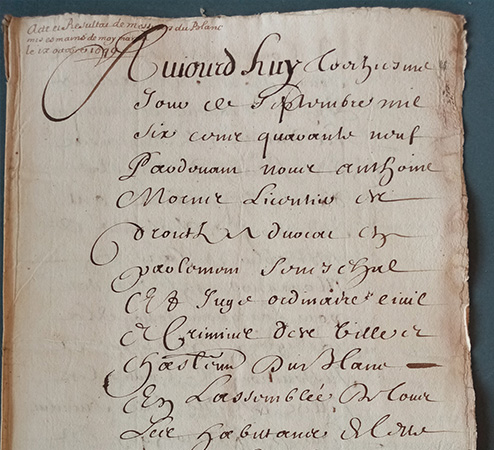 Acte et Resultat de messieurs du Polanc
mis es mains de moy
le ix 1649
Aujourd huy
Jour de Septembre mil
Six cens quarante neuf
Pardevant nous Anthoine
Licentie es
droictz Advocat en
parlement Seneschal
Et Juge ordinaire civil
et Criminel des Ville et
Chasteau Du Blanc
En Lassemblée De tous
Les habitans De